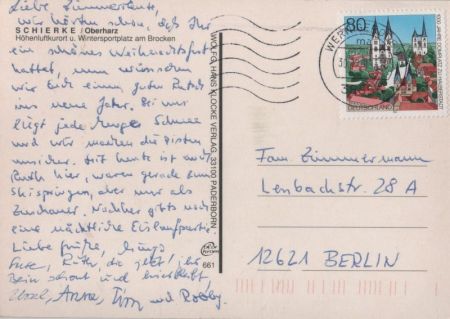 Liebe Zimmerleute,
wir hörten schon, daß Ihr
SCHIERKE / Oberharz
Höhenluftkurort u. Wintersportplatz am Brocken
ein schönes Weihnachtsfest
hattet, nun wünschen
wir Euch einen guten Rutsch
ins neue Jahr. Bei uns
liegt jede Menge Schnee
und wir machen die Pisten
unsicher. Seit heute ist auch
Ruth hier, waren gerade zum
Skispringen, aber nur als
Zuschauer. Nachher gibts noch
eine nächtliche Eislaufpartie.
Liebe Grüße,
Eure, Ruth, die jetzt ihr
Bein schont und
Anne, und Robby.
WOLFG. HANS KLOCKE VERLAG, 33100 PADERBORN
661
80
1000 JAHRE DOMPLATZ ZU HALBERSTADT
DEUTSCHLAND
WER
Fam. Zimmermann
Lenbachstr. 28 A
12621 BERLIN